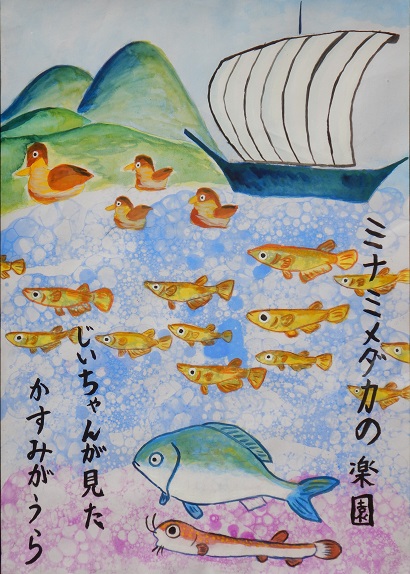 ミナミメダカの楽園
じいちゃんが見た
かすみがうら